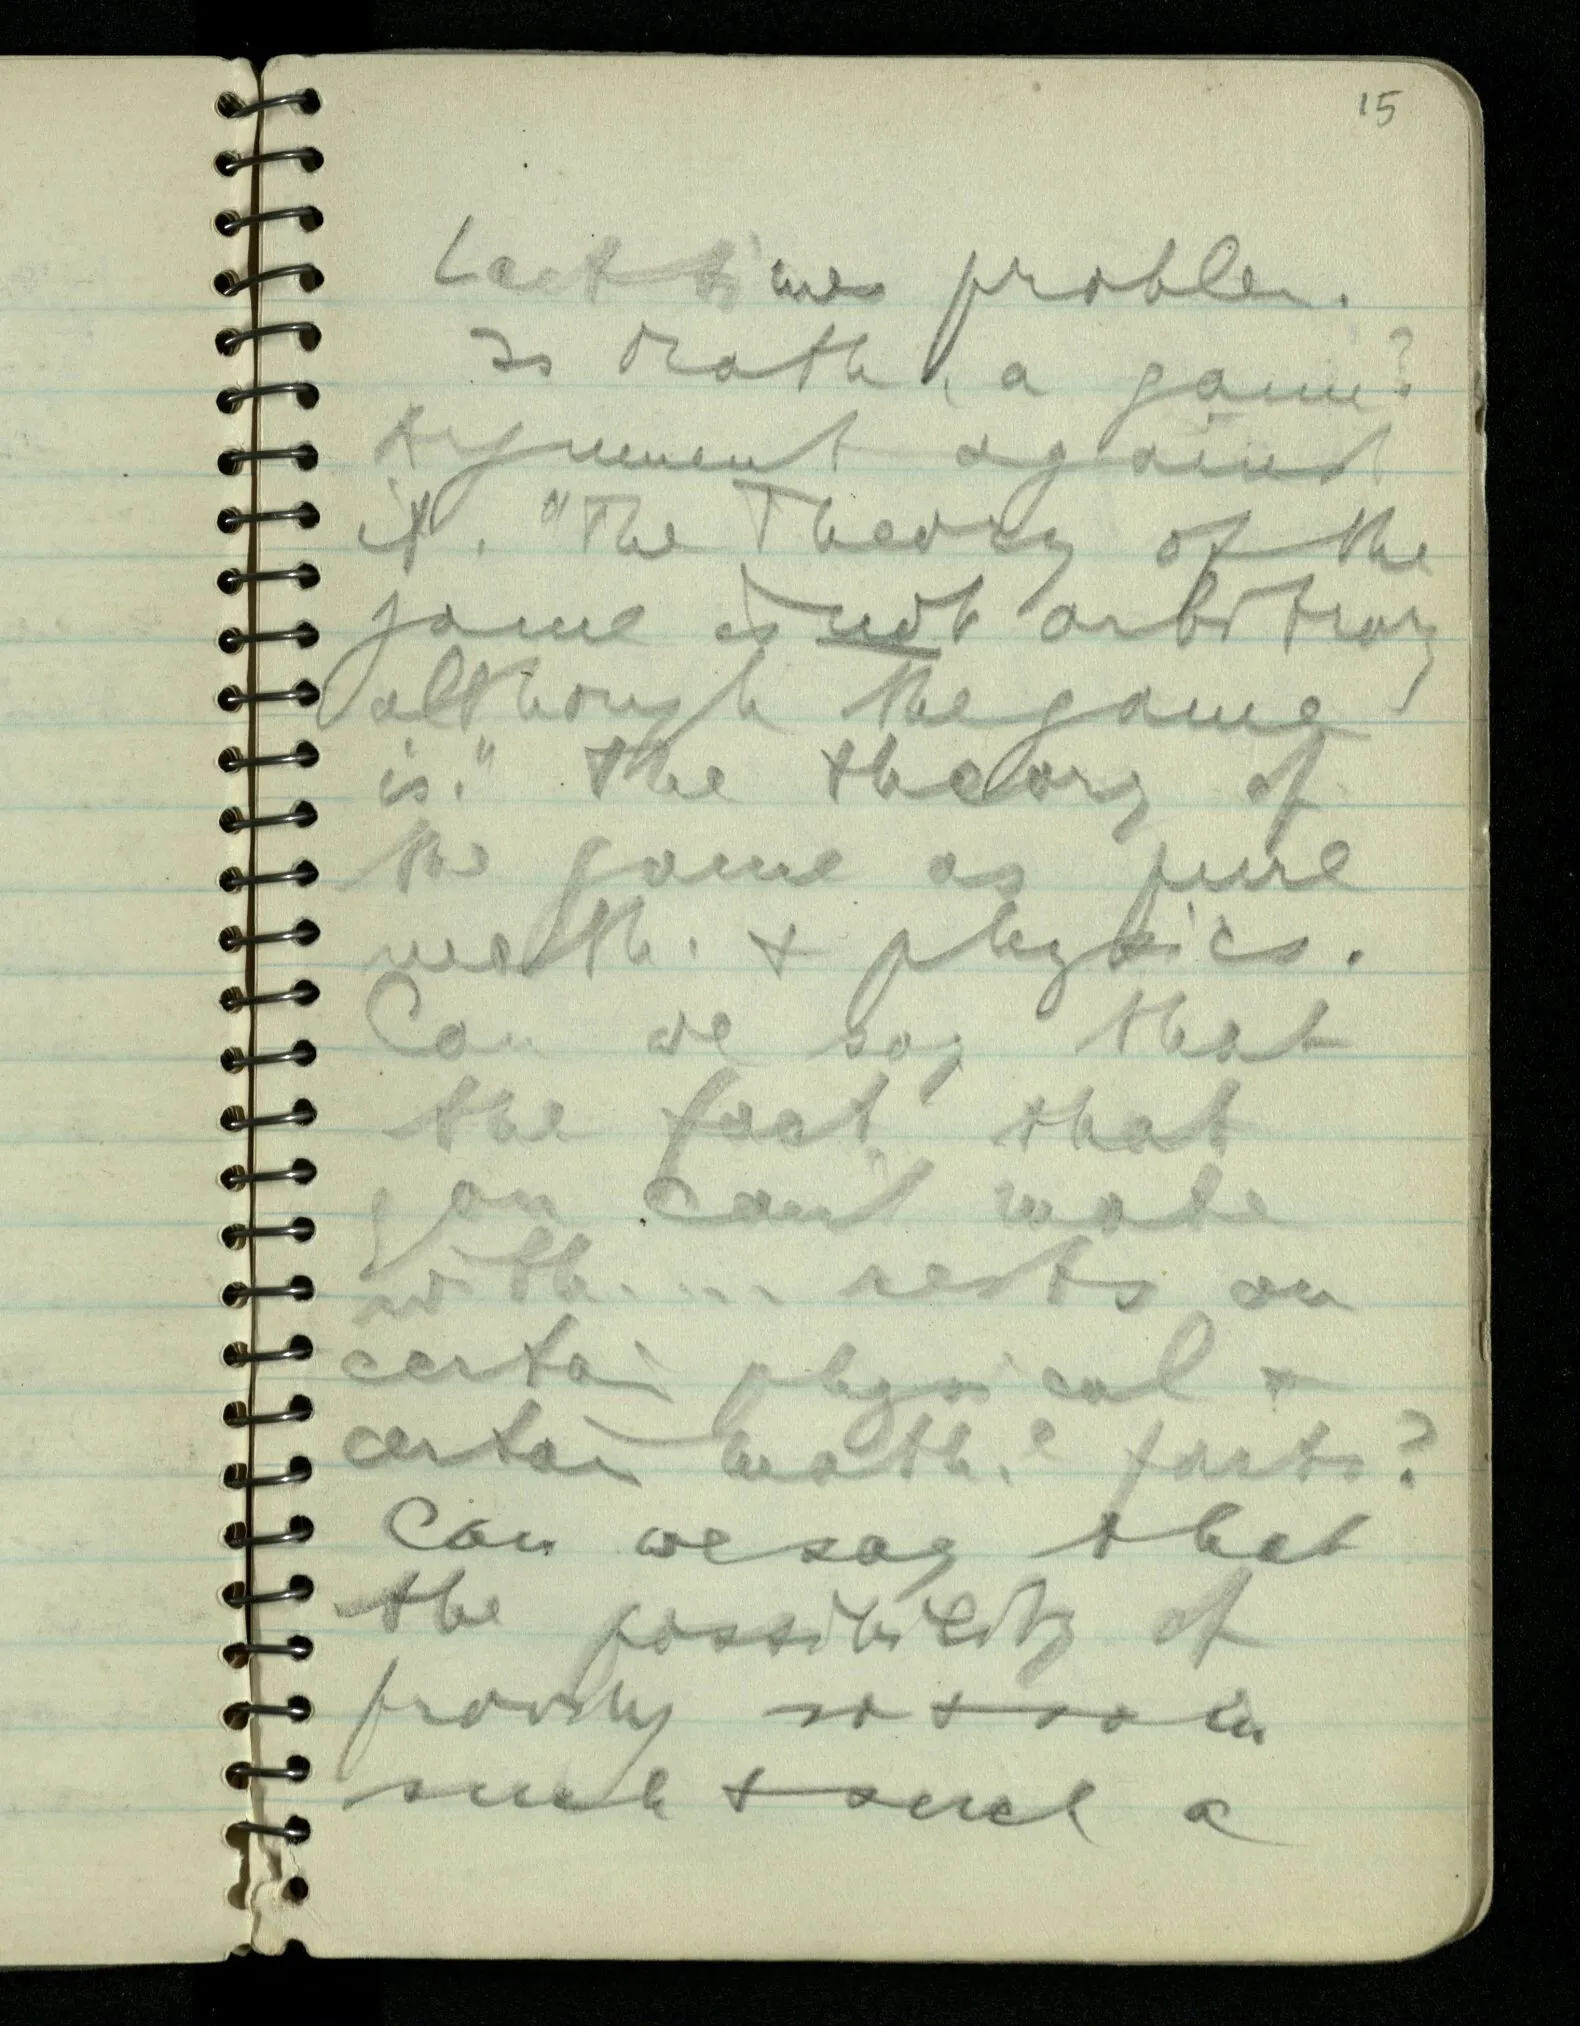 15
Last times problem.
Is math. a game?
Argument against
it. "The Theory of the
game is not arbitrary
although the game
is." The theory of
the game as pure
math. & physics.
Can we say that
the fact that
you can't mate
with.... rests on
certain physical &
certain math.l facts?
Can we say that
the possibility of
proving so & so in
such & such a